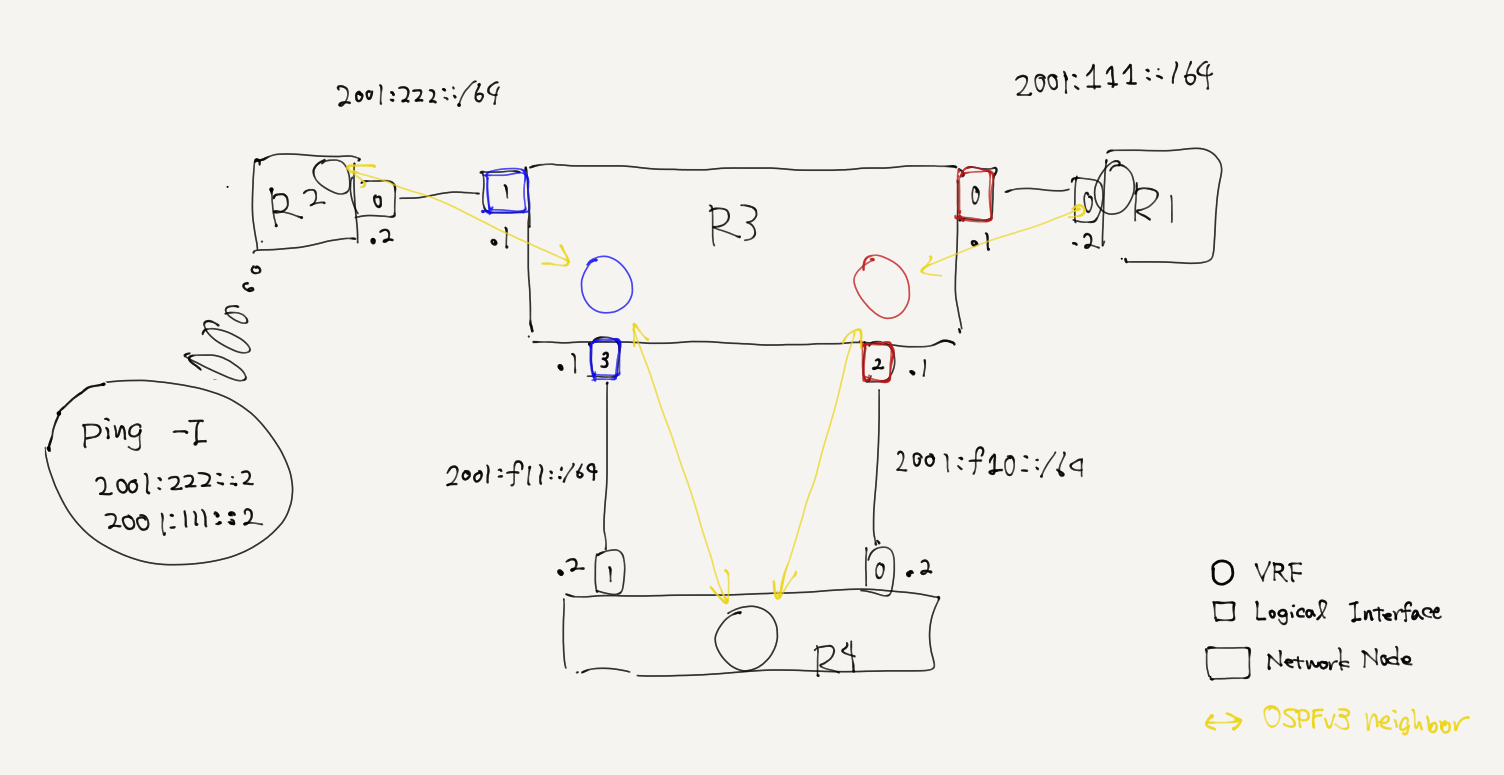 2001:222::/64
2001:111::/64
R2
0
.2
1
.1
R3
0
.1
0
.2
R1
.1
3
2
.1
Ping -I
2001:222::2
2001:111::2
2001:f11::/64
2001:f10::/64
.2
1
0
.2
R4
VRF
Logical Interface
Network Node
OSPFv3 neighbor